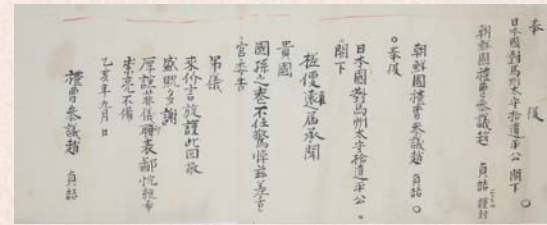 奉 復
日本國對馬州太守拾遺平公 閤下 ○
朝鮮國禮曹參議趙 貞喆 謹封
朝鮮國禮曹參議趙 貞喆 ○
○奉復
日本國對馬州太守拾遺平公 ○
閤下
槎便遠屆承聞
貴國
國孫之 不任驚悼茲差
官委書
吊儀
來价言旋謹此回敬
盛貺多謝
厚誼菲儀聊表鄙忱統希
崇亮不備
乙亥年九月日
禮曹參議趙 貞喆